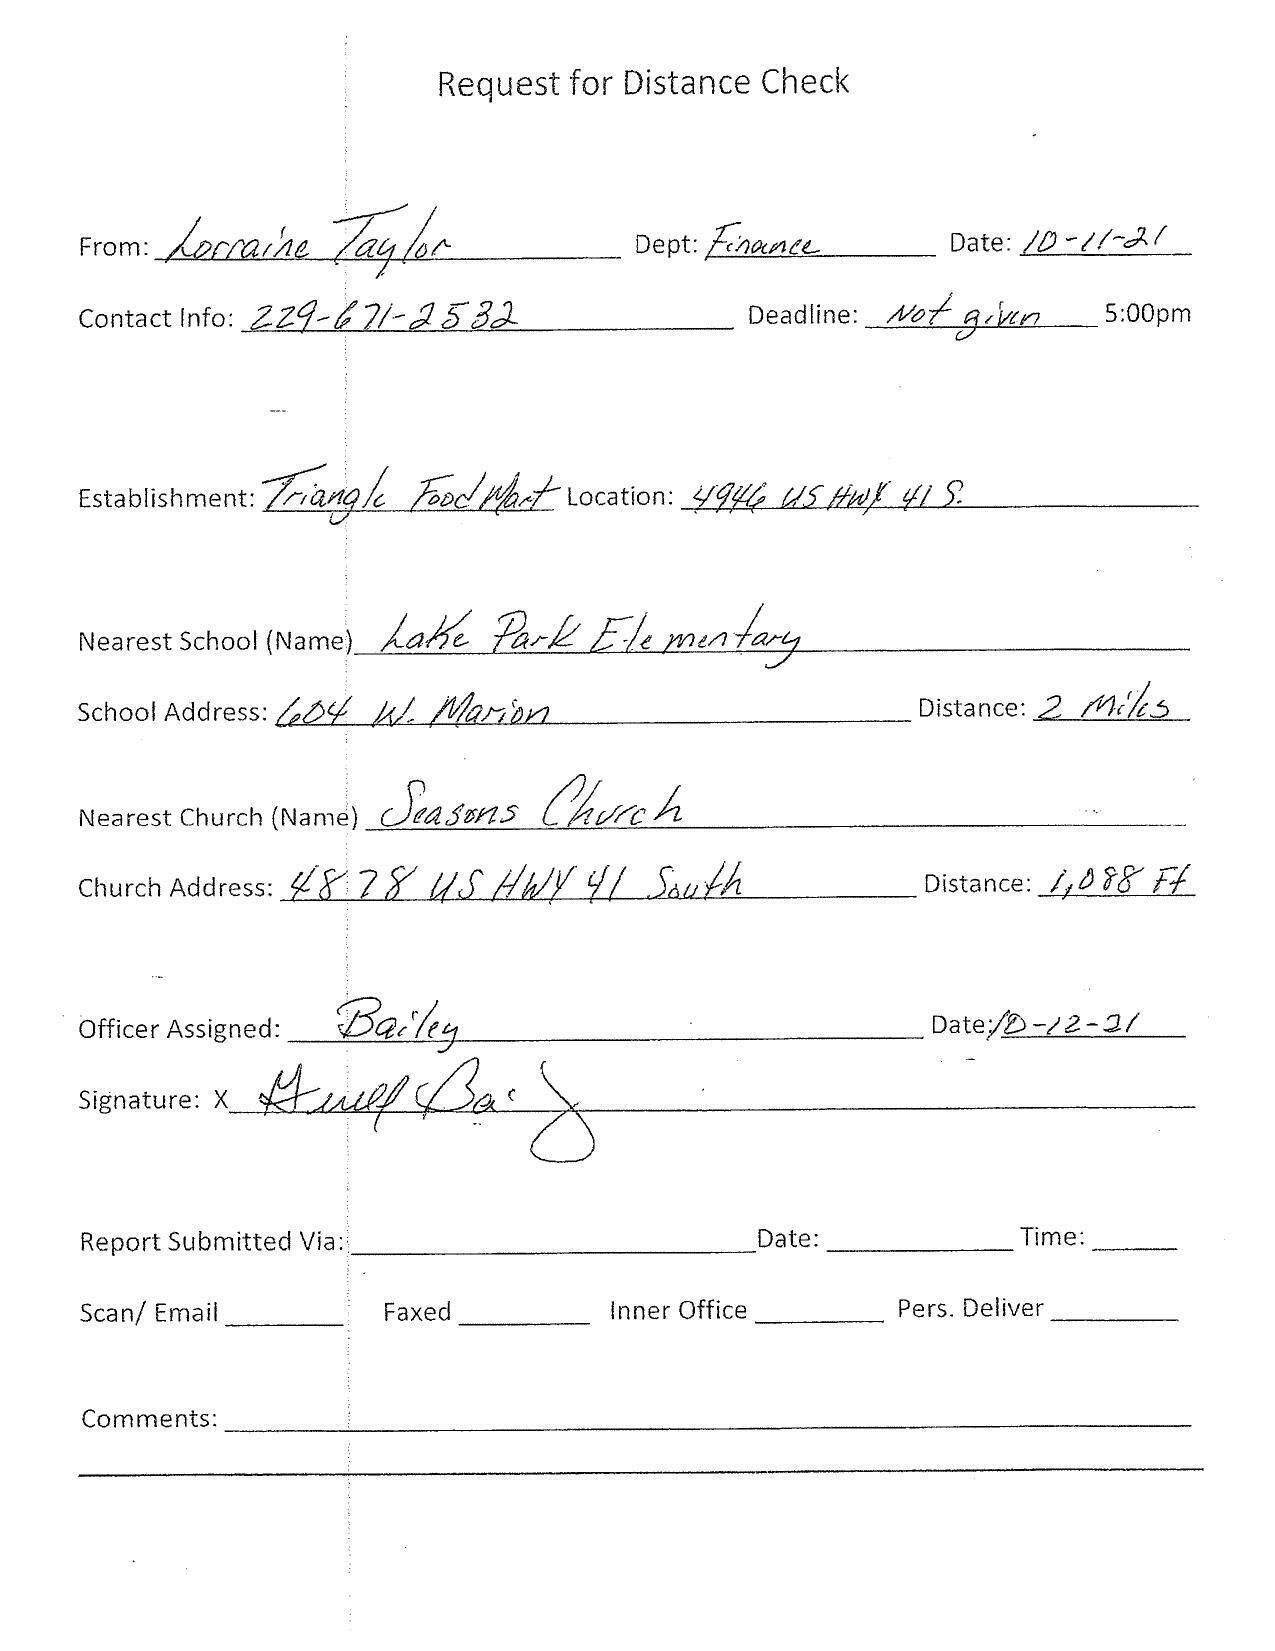 Request for Distance Check
From: Lorraine Taylor Dept: Finance Date: 10-11-21
Contact Info: 229-671-2532 Deadline: Not given 5:00pm
Establishment: Triangle Food Mart Location: 4946 US HWY 41 S.
Nearest School (Name) Lake Park Elementary
School Address: 604 W. Marion Distance: 2 Miles
Nearest Church (Name) Seasons Church
Church Address: 4878 US HWY 41 South Distance: 1,088 Ft
Officer Assigned: Bailey Date: 10-12-21
Signature: X
Report Submitted Via: Date: Time:
Scan/ Email Faxed Inner Office Pers. Deliver
Comments: